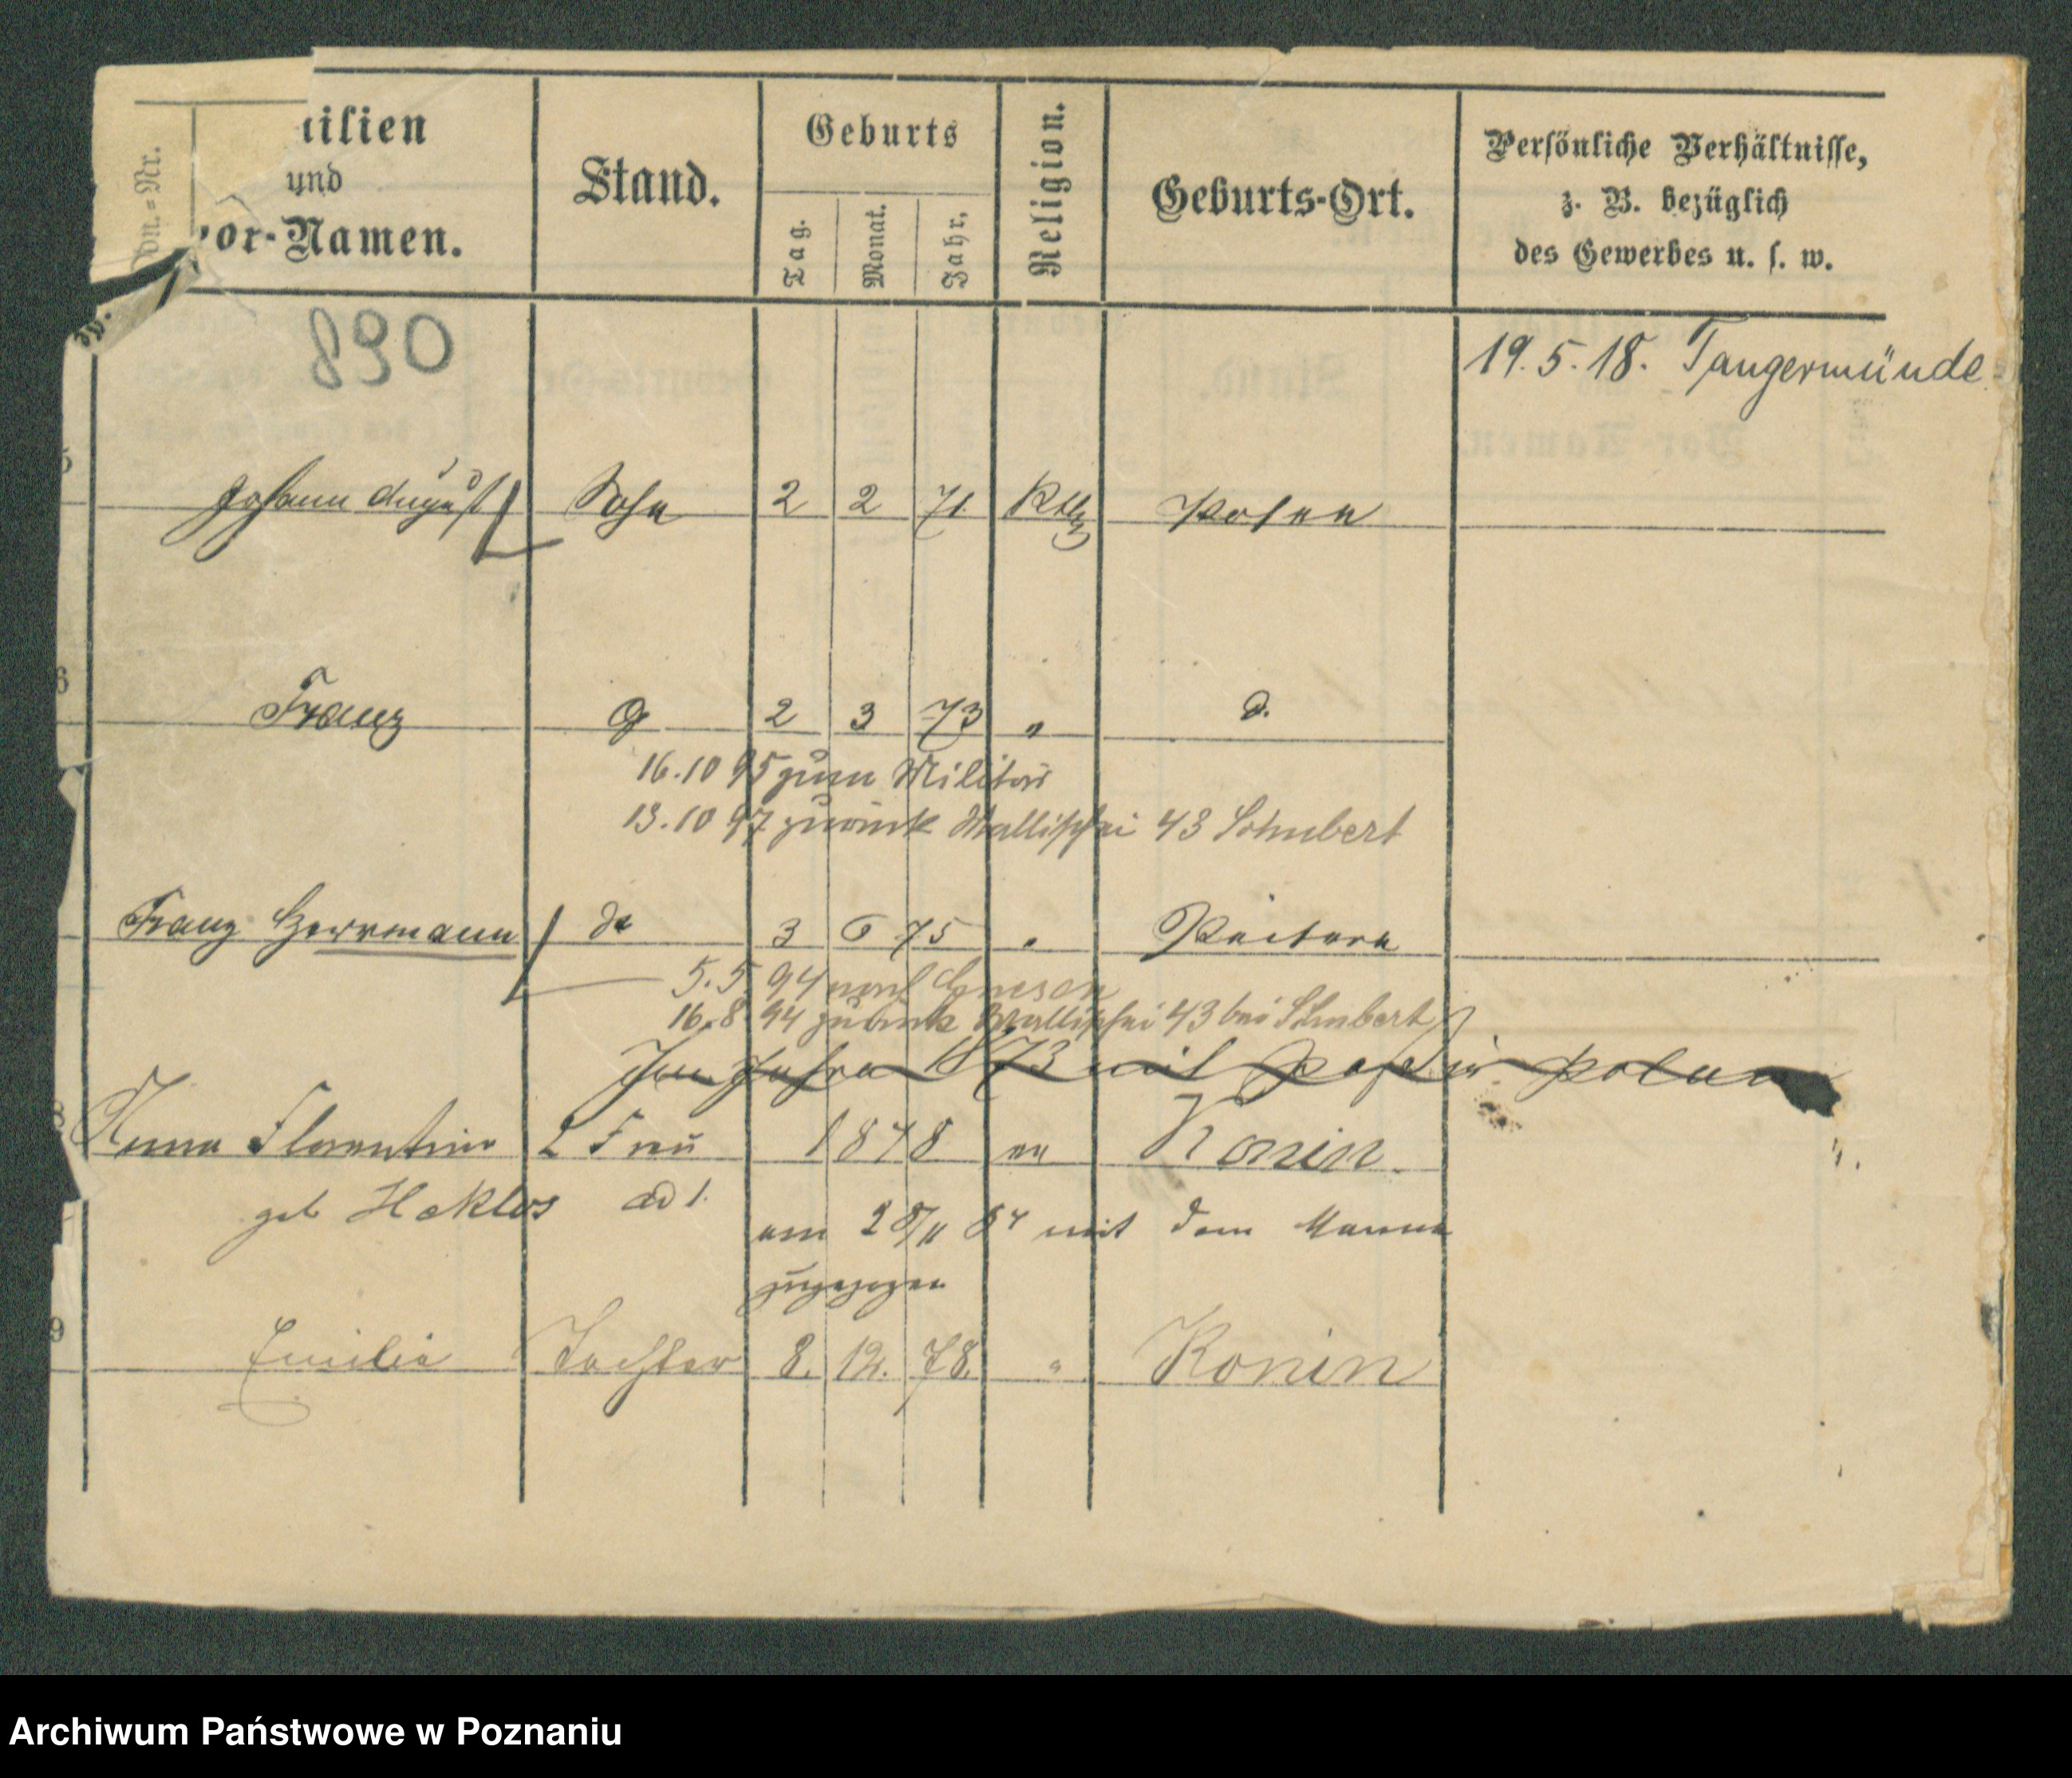 dn.-Nr.
ilien
und
or-Namen.
Stand.
Geburts
Tag.
Monat.
Jahr.
Religion.
Geburts-Ort.
Persönliche Verhältnisse,
z. B. bezüglich
des Gewerbes u. s. w.
890
19. 5. 18. Tangermünde
Johann August Sohn 2 2 71 Posen
6
Franz 2 3 73 " d.
16.10 95 zum Militär
13.10 97 zurück Wallischei 43 Schubert
Franz Herrmann do 3 6 75 "
5.5 94 nach Gnesen
16.8 94 zurück Wallischei 43 bei Schubert
Im Jahre 1873 mit Paß in Polen
8
Anna Florentine Frau 1878 Konin
geb ad 1.
am 28/11 84 mit dem Manne
zugezogen
9
Emilie Tochter 8. 12. 78. " Konin
Archiwum Państwowe w Poznaniu